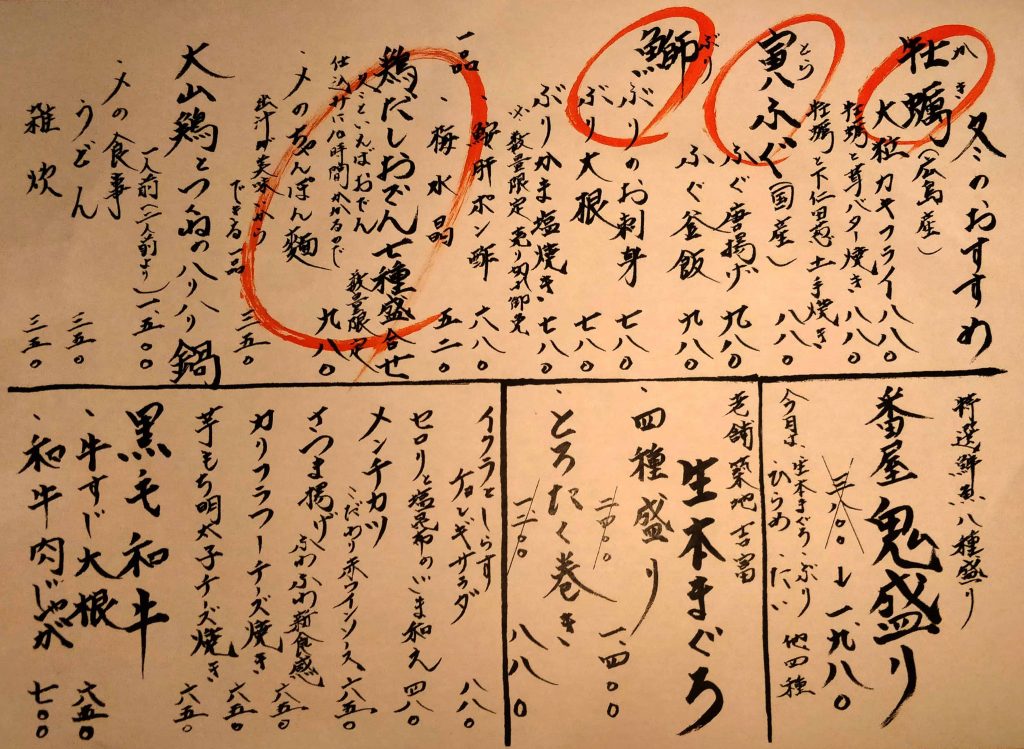 冬のおすすめ
牡蠣（広島産）
かき
大粒カキフライ 八八〇
牡蠣と芋バター焼き 八八〇
牡蠣と下仁田葱土手焼き
寅ハふぐ（国産）
とら
ふぐ唐揚げ 九八〇
ふぐ釜飯 九八〇
鰤
ぶり
ぶりのお刺身 七八〇
ぶり大根 七八〇
ぶりかま塩焼き 七八〇
※数量限定売り切れ御免
一品
鮟肝ポン酢 六八〇
梅水晶 五二〇
鶏だしおでん七種盛合せ
冬といえばおでん
仕込みに10時間かかるので
数量限定 九八〇
〆のちゃんぽん麺 三五〇
出汁が美味いから
できる一品
大山鶏とつくねのハリハリ鍋
一人前（二人前より）一、五〇〇
〆の食事
うどん 三五〇
雑炊 三五〇
特選鮮魚八種盛り
番屋鬼盛り
三、一八〇 ↓ 一、九八〇
今月は、生本まぐろ、ぶり
ひらめ、たい 他四種
老舗築地吉富
生本まぐろ
四種盛り
二、四〇〇 一、一四〇〇
とろたく巻き
一、二〇〇 八八〇
イクラとしらす
ネギサラダ 八八〇
セロリと塩昆布のごま和え 四八〇
メンチカツ
こだわり赤ワインソース 六八〇
さつま揚げ
ふわふわ新食感 六五〇
カリフラワーチーズ焼き 六五〇
芋もち明太子チーズ焼き 六五〇
黒毛和牛
牛すじ大根 六八〇
和牛肉じゃが 七〇〇